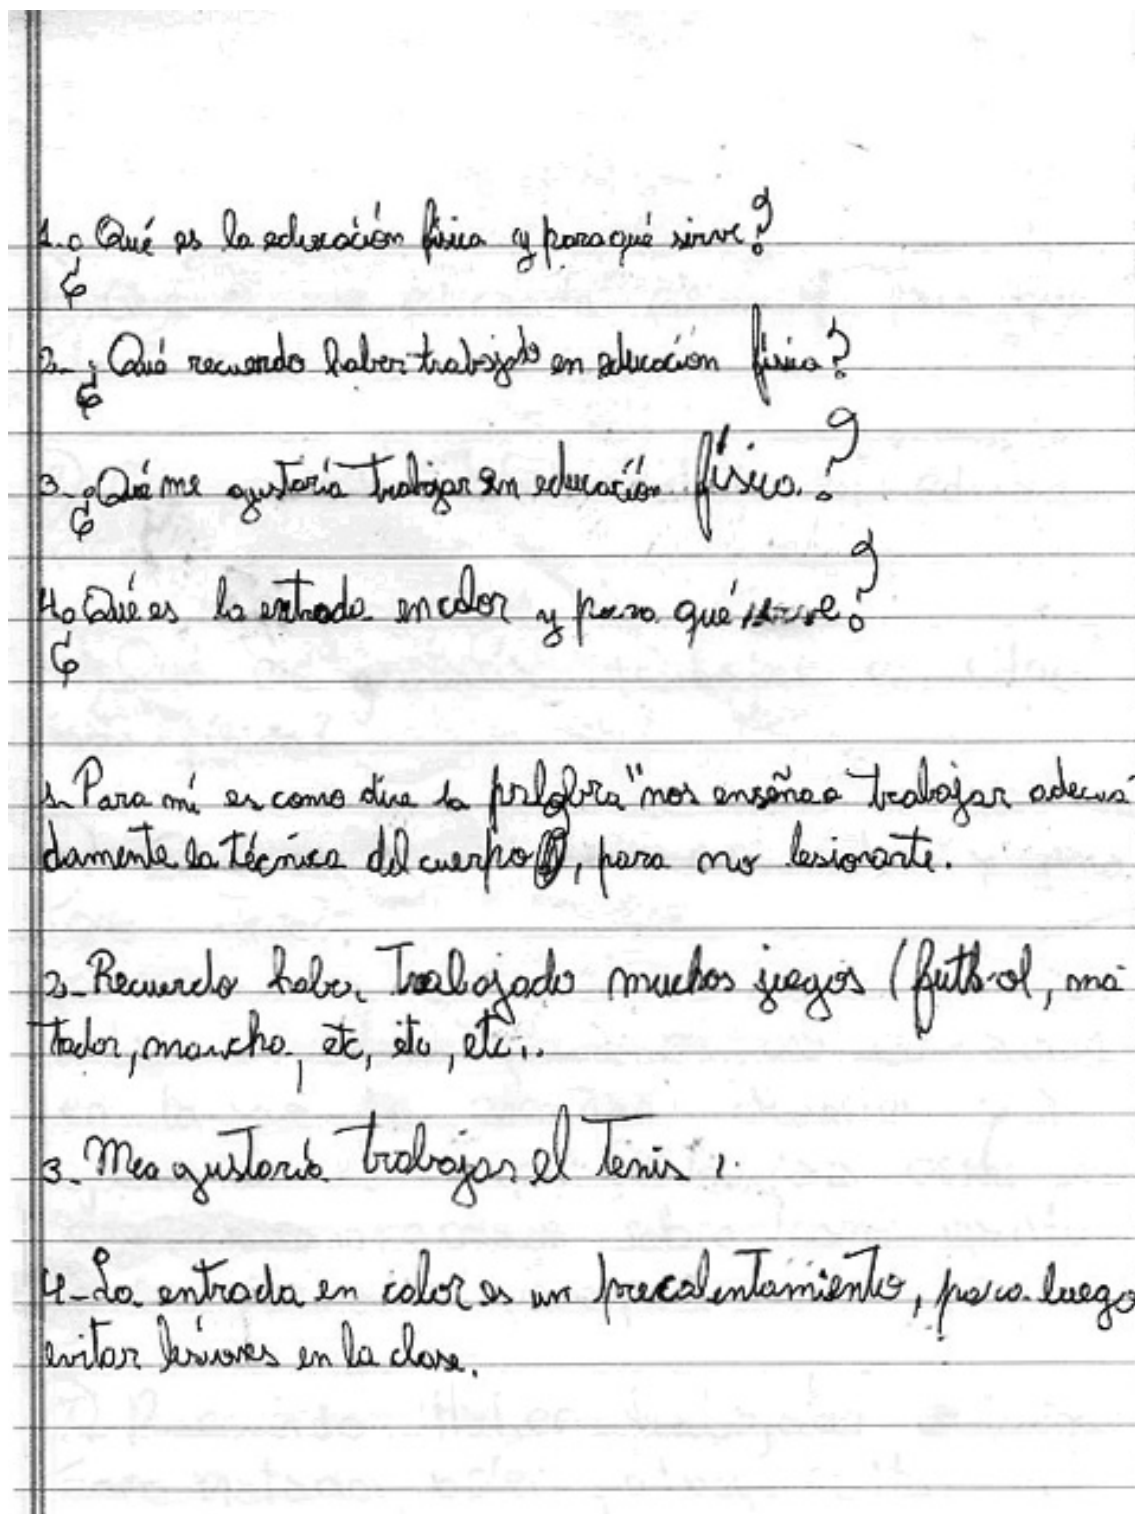 1. ¿Qué es la educación física y para qué sirve?
2- ¿Qué recuerdo haber trabajado en educación física?
3- ¿Qué me gustaría trabajar en educación física?
4 ¿Qué es la entrada en calor y para qué sirve?
1- Para mí es como dice la palabra "nos enseña a trabajar adecua
damente la técnica del cuerpo, para no lesionarte.
2- Recuerdo haber trabajado muchos juegos (futbol, ma
tador, mancha, etc, etc, etc..
3- Mea gustaría trabajar el tenis.
4- La entrada en calor es un precalentamiento, para luego
evitar lesiones en la clase.